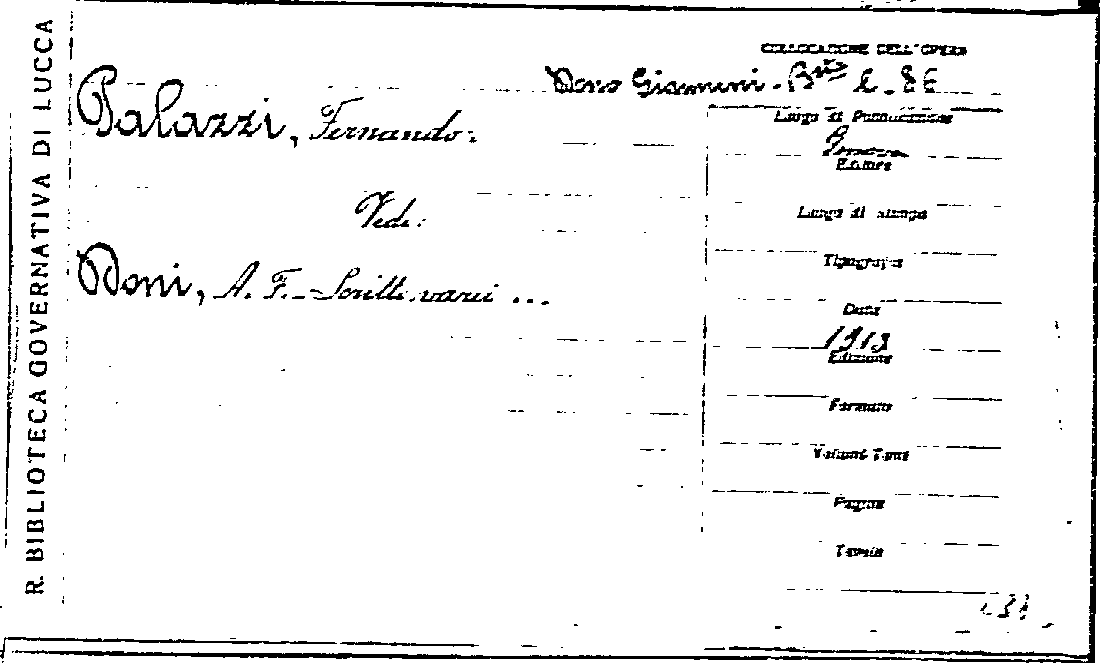 R. BIBLIOTECA GOVERNATIVA DI LUCCA
COLLOCAZIONE DELL'OPERA
Dono Giannini - B.ta 2. 86
Palazzi, Fernando:
Vedi:
Doni, A. F. - Scritti varii ...
Luogo di Pubblicazione
Genova
Editore
Luogo di stampa
Tipografia
Data
1913
Edizione
Formato
Volumi Tomi
Pagine
Tavole